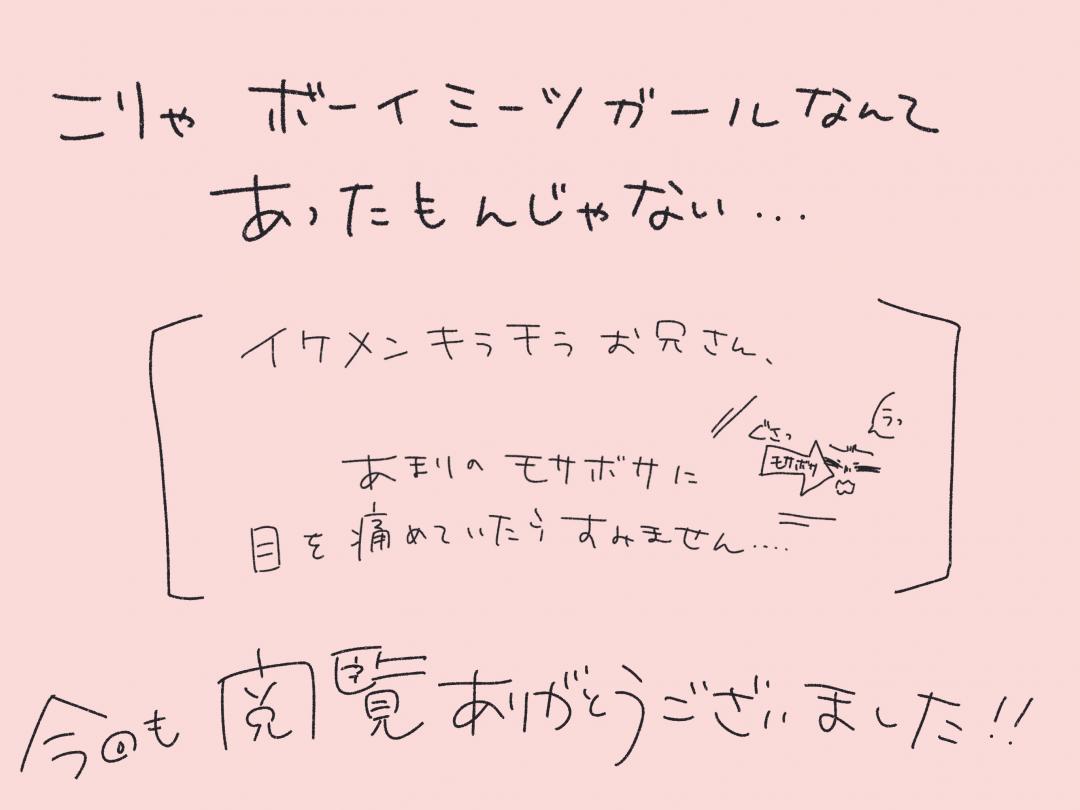 こりゃ ボーイミーツガールなんて
あったもんじゃない...
イケメンキラキラお兄さん、
うっ
ぐさっ
モサボサ
あまりの モサボサに
目を痛めていたらすみません....
今回も閲覧ありがとうございました!!